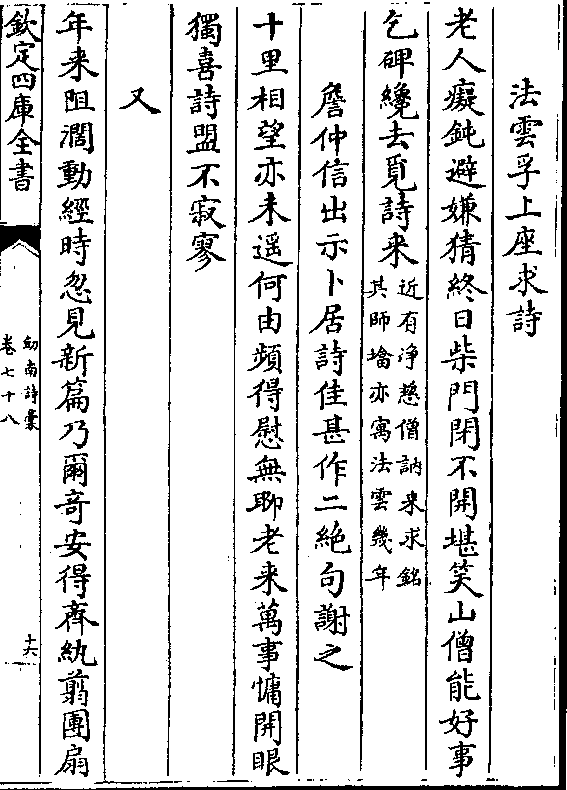 法雲孚上座求詩
老人癡鈍避嫌猜終日柴門閉不開堪笑山僧能好事
乞碑纔去覓詩来近有浄慈僧訥来求銘
其師墖亦寓法雲幾年
詹仲信出示卜居詩佳甚作二絶句謝之
十里相望亦未遥何由頻得慰無聊老来萬事慵開眼
獨喜詩盟不寂寥
又
年来阻濶動經時忽見新篇乃爾竒安得齊紈翦團扇
欽定四庫全書
劒南詩藁
卷七十八
十六